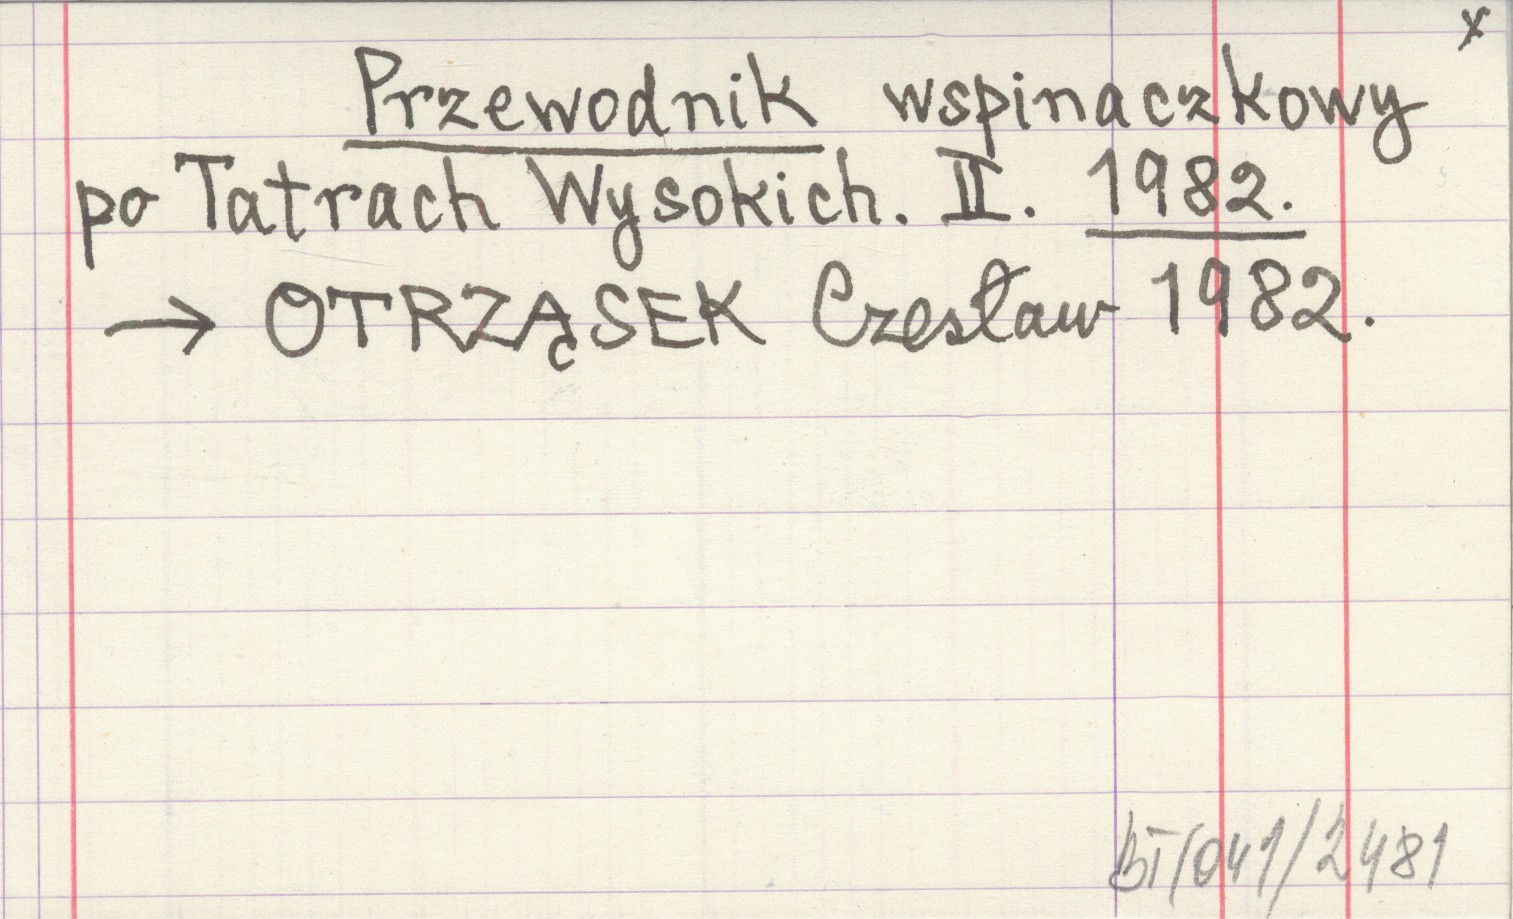 x
Przewodnik wspinaczkowy
po Tatrach Wysokich. II. 1982.
→ OTRZĄSEK Czesław 1982.
BT/041/2481